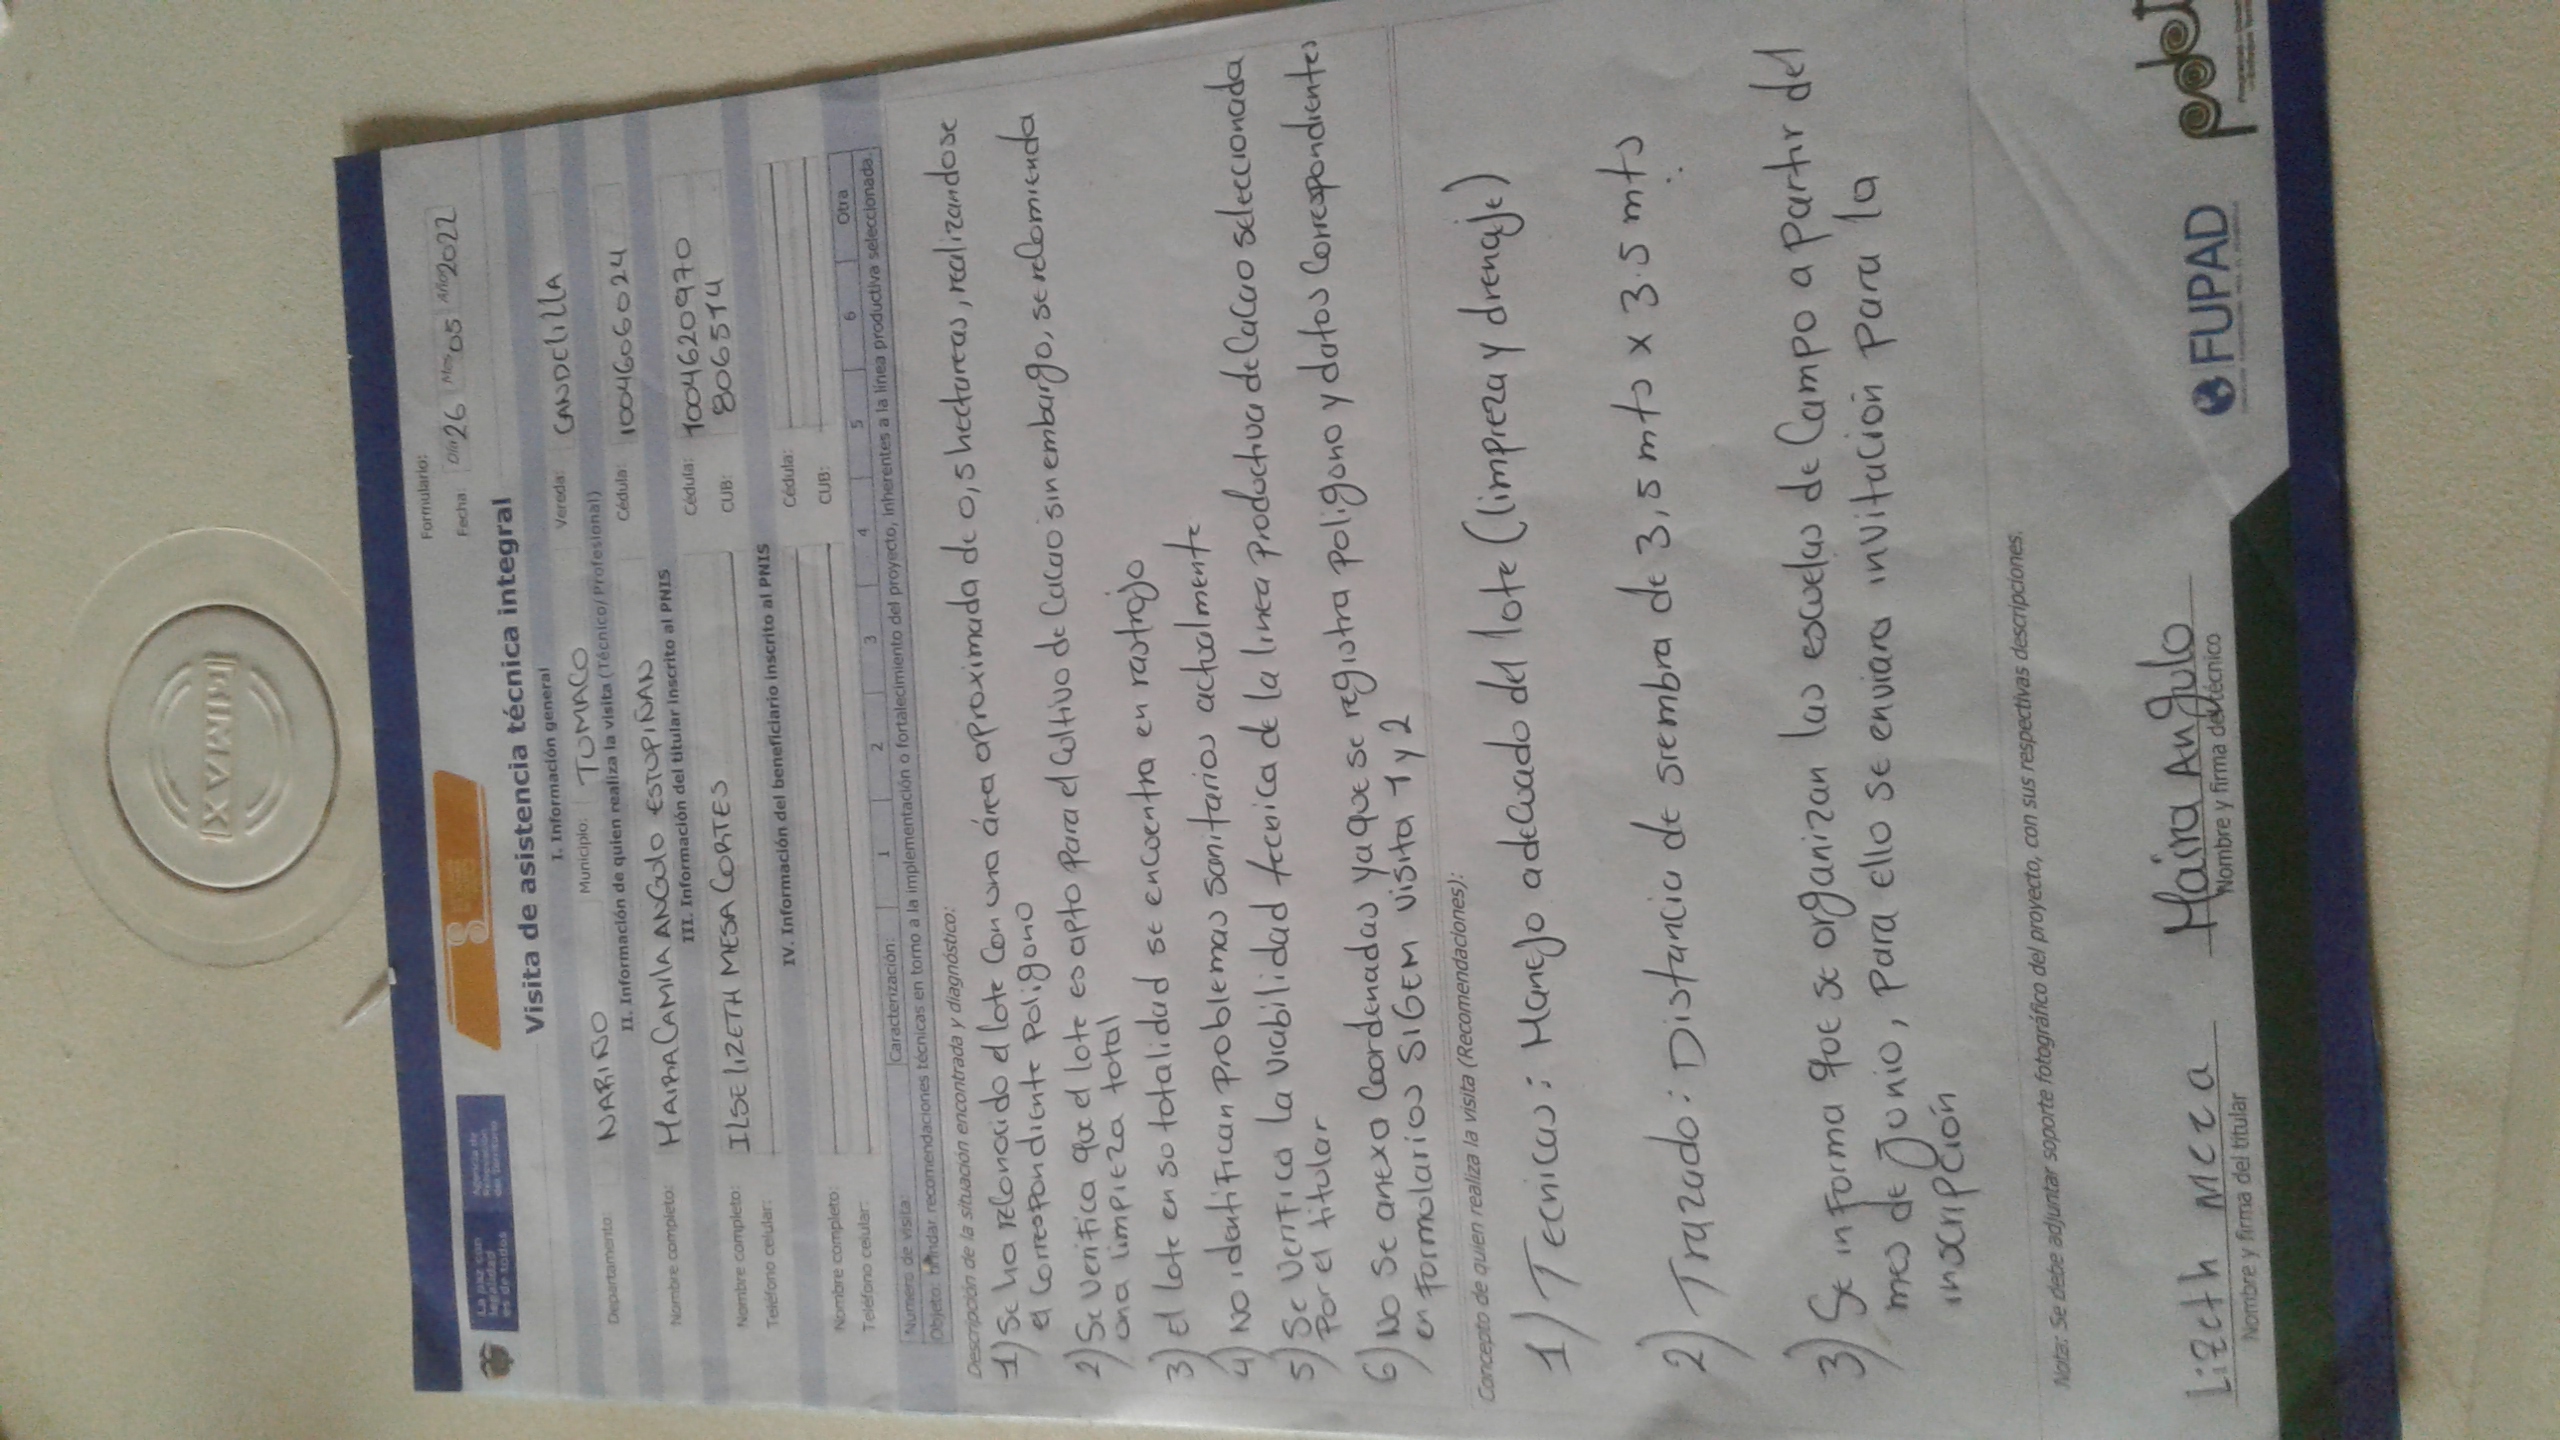 La paz con
legalidad
es de todos
Agencia de
Renovación
del Territorio
Formulario:
Fecha: Día 26 Mes 05 Año 2022
Visita de asistencia técnica integral
I. Información general
Departamento: NARIÑO Municipio: TUMACO Vereda: CANDELILLA
II. Información de quien realiza la visita (Técnico/Profesional)
Nombre completo: MAIRA CAMILA ANGULO ESTUPIÑAN Cédula: 1004606024
III. Información del titular inscrito al PNIS
Nombre completo: ILSE LIZETH MESA CORTES Cédula: 1004620970
Teléfono celular: CUB: 806514
IV. Información del beneficiario inscrito al PNIS
Nombre completo: Cédula:
Teléfono celular: CUB:
Numero de visita: Caracterización: 1 2 3 4 5 6 Otra
Objeto: brindar recomendaciones técnicas en torno a la implementación o fortalecimiento del proyecto, inherentes a la línea productiva seleccionada.
Descripción de la situación encontrada y diagnóstico:
1) Se ha reconocido el lote con una área aproximada de 0,5 hectareas, realizandose
el correspondiente Poligono
2) Se Verifica que el lote es apto Para el Cultivo de Cacao sin embargo, se recomienda
una limpieza total
3) El lote en su totalidad se encuentra en rastrojo
4) No identifican Problemas sanitarios actualmente
5) Se Verifica la viabilidad tecnica de la linea Productiva de Cacao seleccionada
Por el titular
6) No Se anexo Coordenadas ya que se registra Poligono y datos Correspondientes
en Formularios SIGEM visita 1 y 2
Concepto de quien realiza la visita (Recomendaciones):
1) Tecnicas: Manejo adecuado del lote (limpieza y drenaje)
2) Trazado: Distancia de siembra de 3,5 mts x 3.5 mts
3) Se informa que se organizan las escuelas de Campo a Partir del
mes de Junio, Para ello se enviara invitación Para la
inscripción
Nota: Se debe adjuntar soporte fotográfico del proyecto, con sus respectivas descripciones.
Lizeth Meza
Nombre y firma del titular
Maira Angulo
Nombre y firma del técnico
FUPAD
pdet
KIMAX